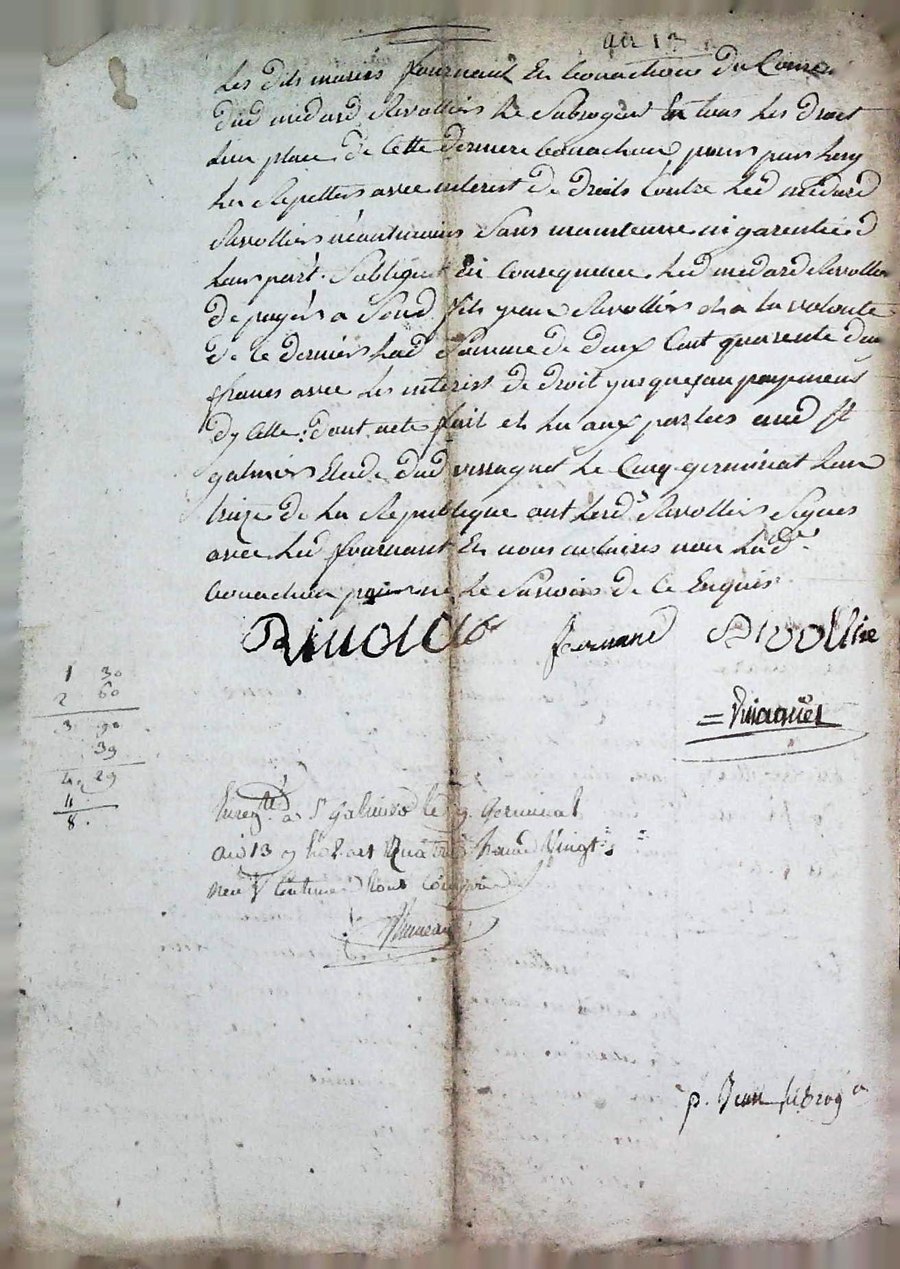 an 13
Les dits mariés fournant et bonachon du Consen
dud medard Rivolliers Le Subrogent En tous Les droit
Lieu place de Cette derniere bonachon pour par Luy
Les Repetters avec interest de droits Contre Led medard
Rivolliers neantmoins Sans maintenue ni garentie d
Leur part. Soblige En Consequence Led medard Rivollier
de payer a Sond. fils jean Rivolliers et a la volonté
de Ce derniers Lad Somme de deux Cent quarente deux
francs avec Les interest de droit jusques au payement
dycelle. dont acte fait et Lu aux parties aud St
galmier Etude dud vinagnet Le Cinq germinat Lan
treize de La Republique ont Lesd. Rivolliers Signés
avec Led fournant Et nous notaires non Lad.
bonachon pour ne Le Savoir de Ce Enquis
Rivollie fournand Rivollie
= Vinagnet
1 30
2 60
3 90
39
4 29
4
8.
Enregté a St Galmier le 9 Germinal
an 13 Quatre francs Vingt
neuf Centimes Pour
p. Jean subrogé